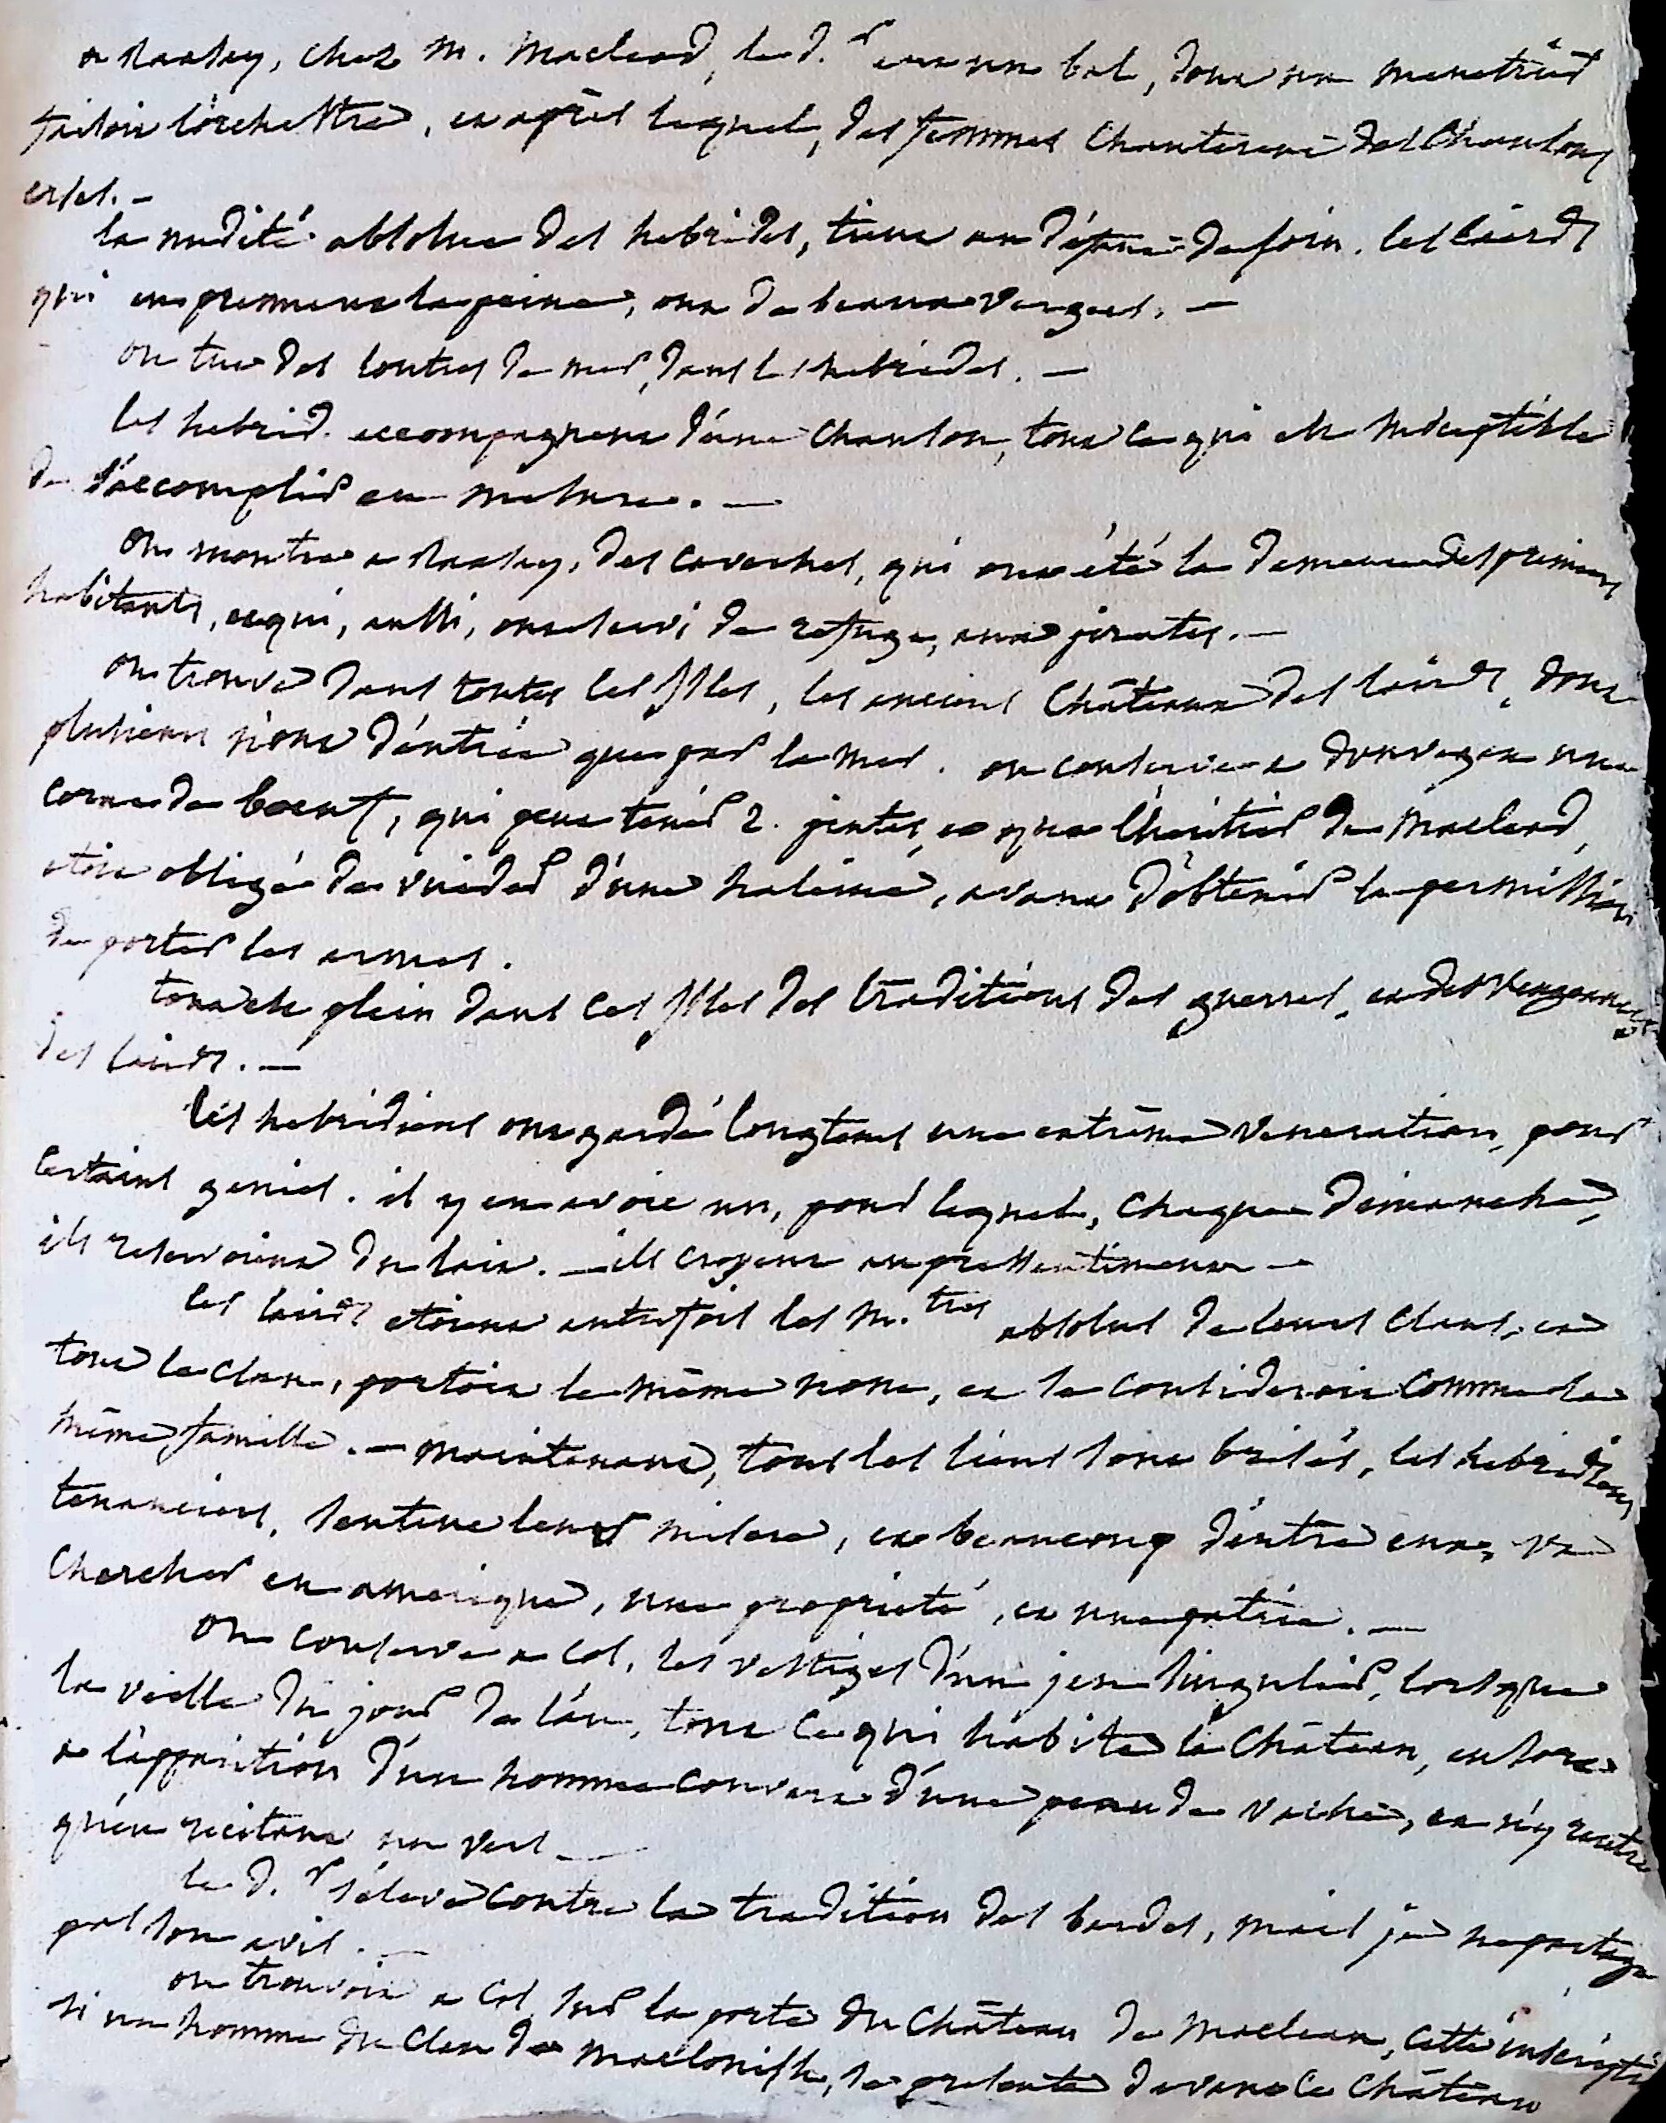 a Raasay, chez M. Macleod, le d.r eut un bal, dont un menetrier
faisoit l'orchestre, et après lequel, des femmes chanterent des chansons
erses. —
la nudité absolue des hebrides, tient au défaut de soin. les lairds
qui en prennent la peine, ont de beaux vergers. —
on tue des loutres de mer, dans les hebrides. —
les hebrid. accompagnent d'une chanson, tout ce qui est susceptible
de s'accomplir en mesure. —
on montre a Raasay, des cavernes, qui ont été la demeure des premiers
habitants, et qui, aussi, ont servi de refuge, aux pirates. —
on trouve dans toutes les isles, les anciens châteaux des lairds, dont
plusieurs n'ont d'entrée que par la mer. on conserve a Dunvegan une
corne de boeuf, qui peut tenir 2. pintes, et que l'héritier de Macleod,
etoit obligé de vuider d'une haleine, avant d'obtenir la permission
de porter les armes.
tout est plein dans ces isles des traditions des guerres, et des vengeances
des lairds. —
les hebridiens ont gardé longtems une extrême veneration, pour
certains genies. il y en avoit un, pour lequel, chaque dimanche,
ils reservoient du lait. — ils croyent au pressentiment —
les lairds etoient autrefois les m.tres absolus de leurs clans, et
tout le clan, portoit le même nom, et se consideroit comme la
même famille. — maintenant, tous les liens sont brisés, les hebridiens
tenanciers, sentent leur misere, et beaucoup d'entre eux, va
chercher en amerique, une proprieté, et une patrie. —
on conserve a Col, les vestiges d'un jeu singulier, lorsque
la veille du jour de l'an, tout ce qui habite le château, en sort
a l'apparition d'un homme couvert d'une peau de vache, et n'y rentre
qu'en recitant un vers —
le d.r s'éleve contre la tradition des bardes, mais je ne partage
pas son avis. —
on trouvoit a Col, sur la porte du château de Maclean, cette inscription
si un homme du clan de Maclonich, se presente devant ce château